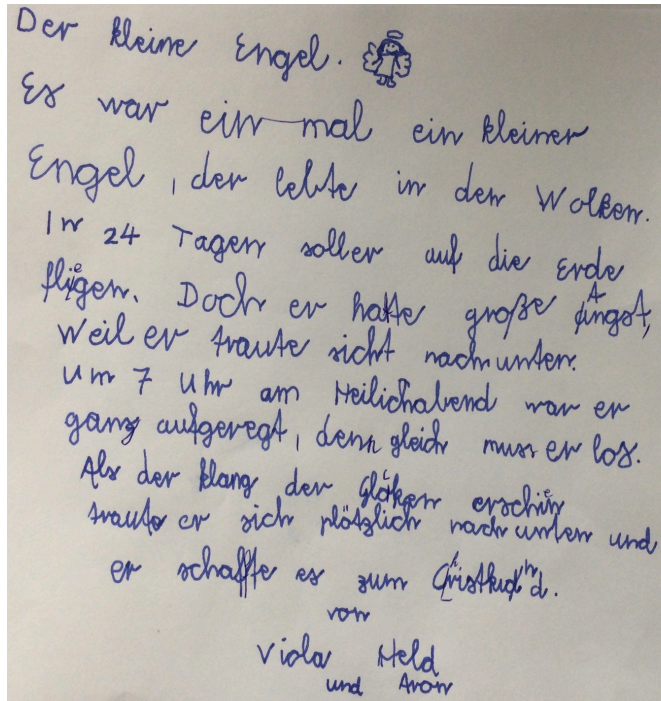 Der kleine Engel.
Es war ein mal ein kleiner
Engel, der lebte in den Wolken.
In 24 Tagen soller auf die Erde
fliegen. Doch er hatte große Angst,
weil er traute sicht nach unten.
Um 7 Uhr am Heilichabend war er
ganz aufgeregt, denn gleich muss er los.
Als der klang der Glöcken erschien
traute er sich plötzlich nach unten und
er schaffte es zum Christkind.
von
Viola Held
und Aron